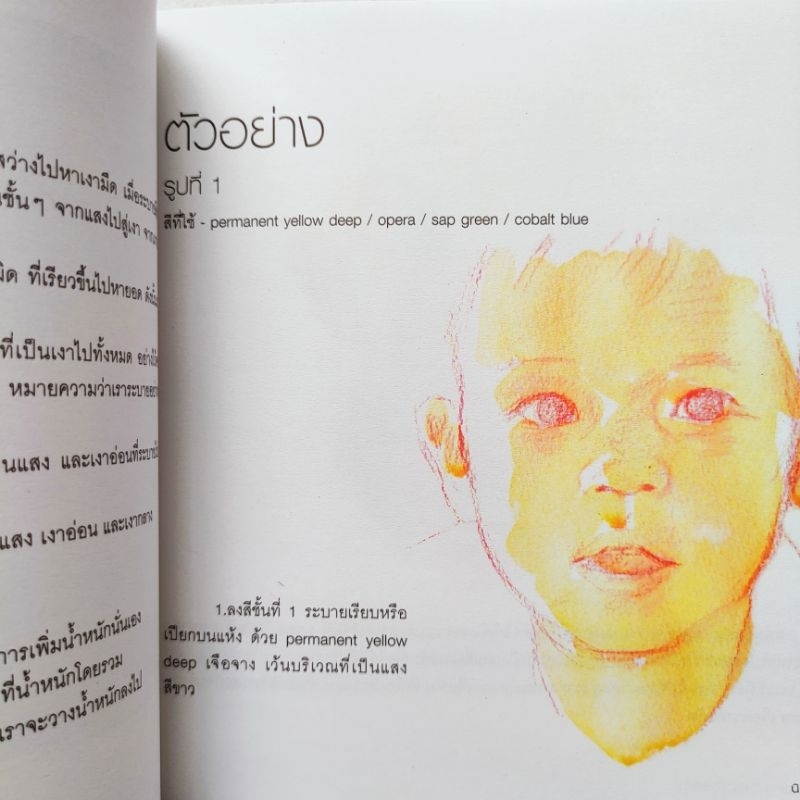 ว่างไปหาเงามืด เมื่อระบาย
ชั้นๆ จากแสงไปสู่เงา
ที่เรียวขึ้นไปหายอด
ที่เป็นเงาไปทั้งหมด
หมายความว่าเราระบาย
นแสง และเงาอ่อนที่ระบาย
แสง เงาอ่อน และเงากลาง
การเพิ่มน้ำหนักนั่นเอง
ที่น้ำหนักโดยรวม
เราจะวางน้ำหนักลงไป
ตัวอย่าง
รูปที่ 1
สีที่ใช้ - permanent yellow deep / opera / sap green / cobalt blue
1.ลงสีชั้นที่ 1 ระบายเรียบหรือ
เปียกบนแห้ง ด้วย permanent yellow
deep เจือจาง เว้นบริเวณที่เป็นแสง
สีขาว